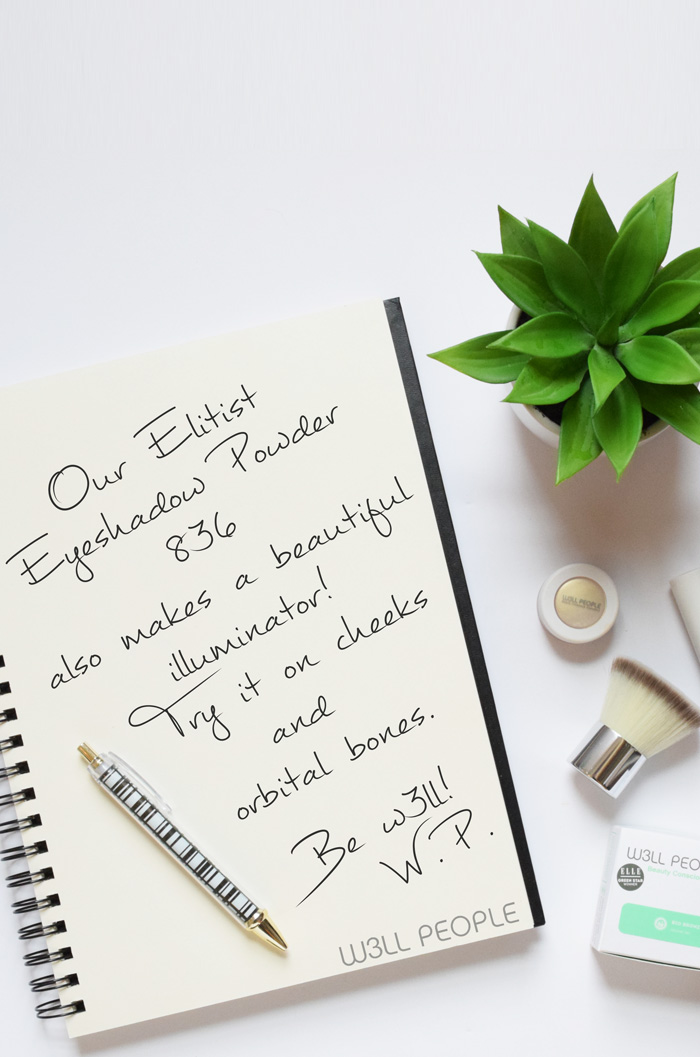 Our Elitist
Eyeshadow Powder
836
also makes a beautiful
illuminator!
Try it on cheeks
and
orbital bones.
Be w3ll!
W.P.
W3LL PEOPLE
W3LL PEOPLE
W3LL PEO
Beauty
ELLE
GREEN STAR